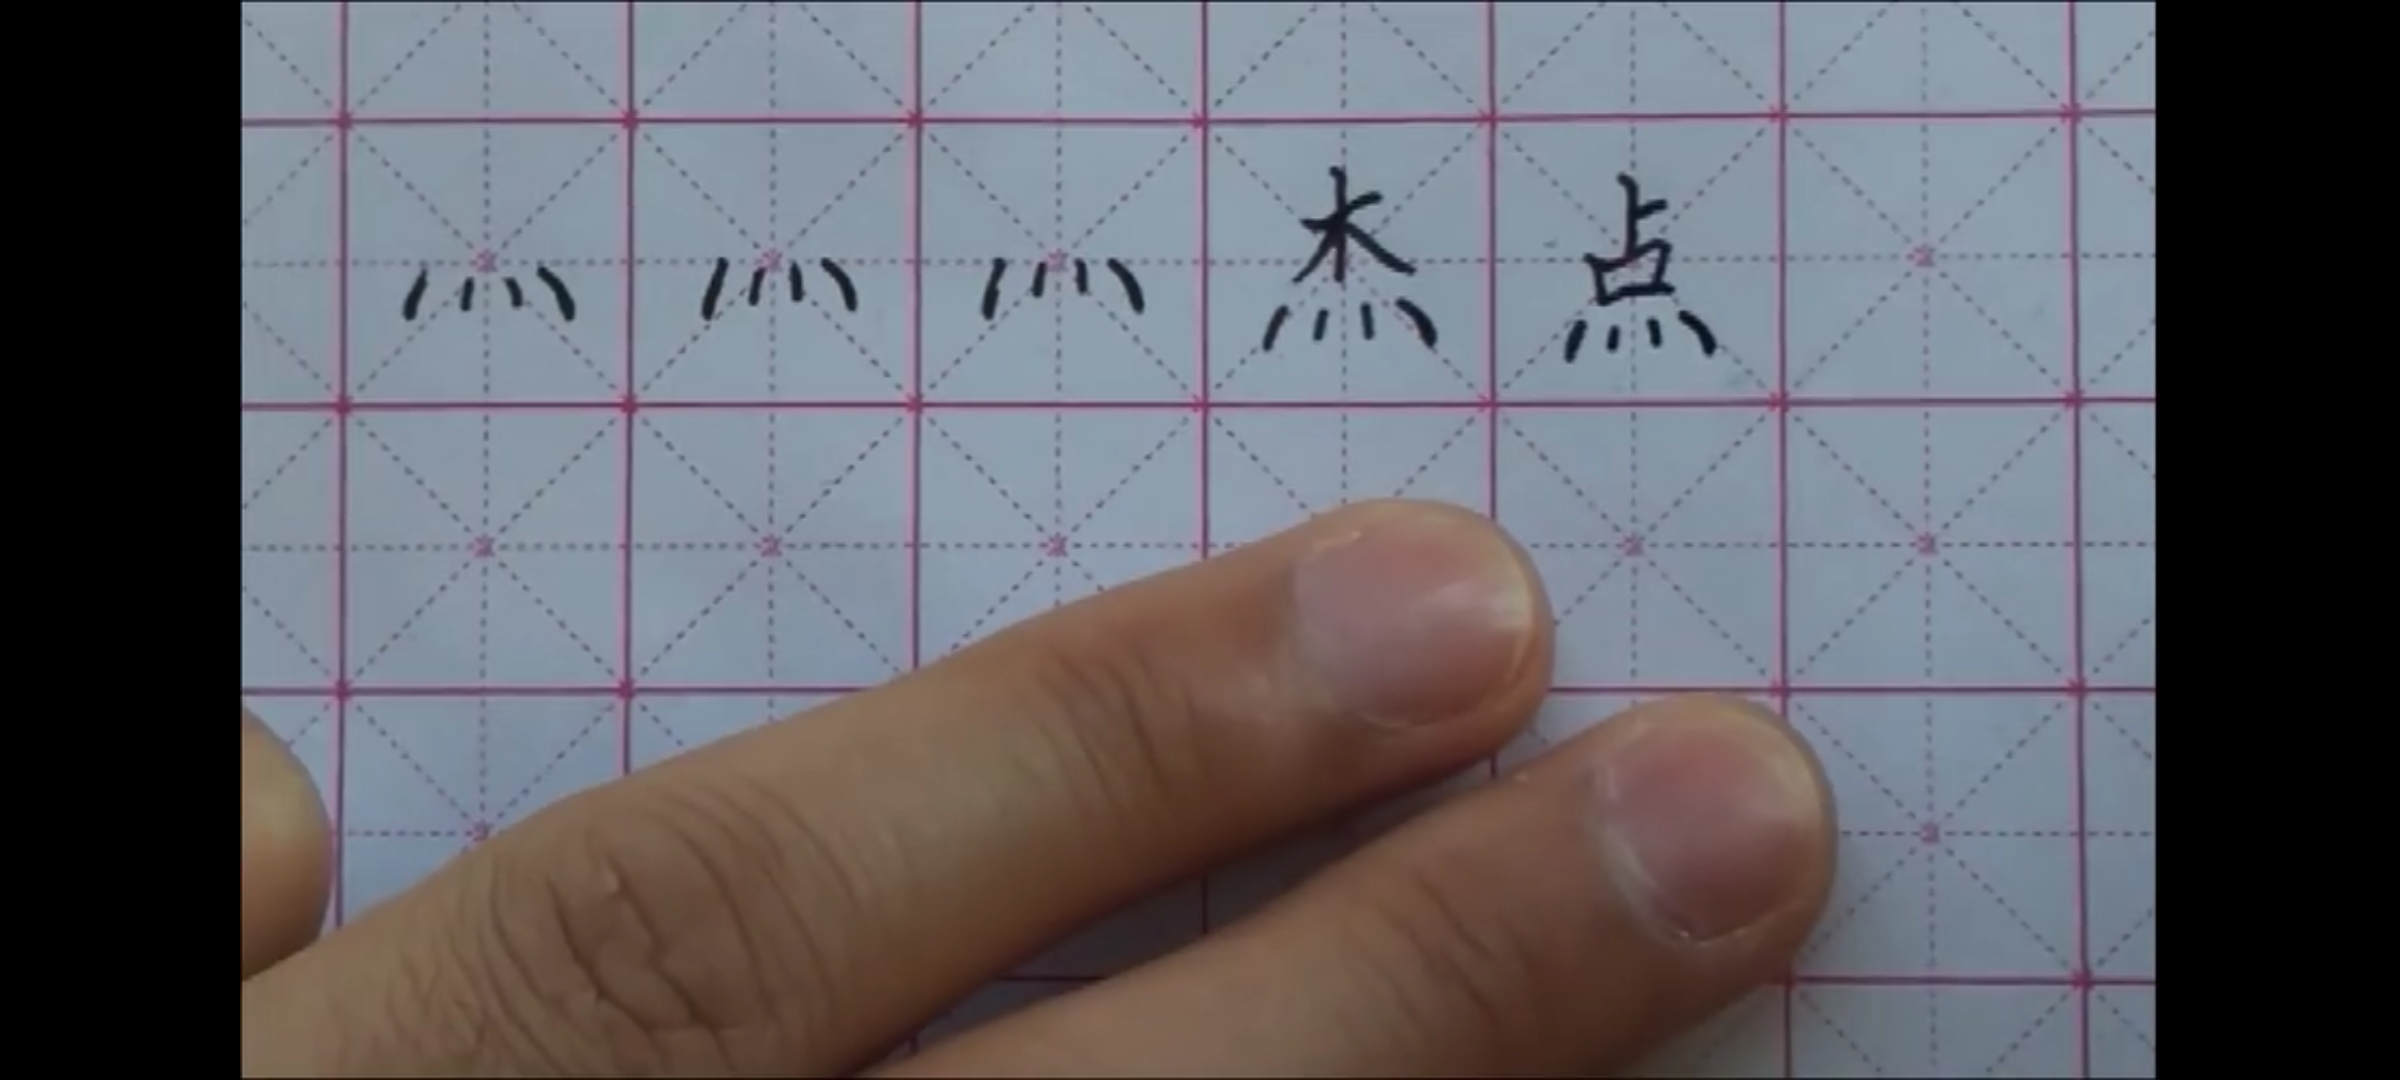 灬 灬 灬 杰 点